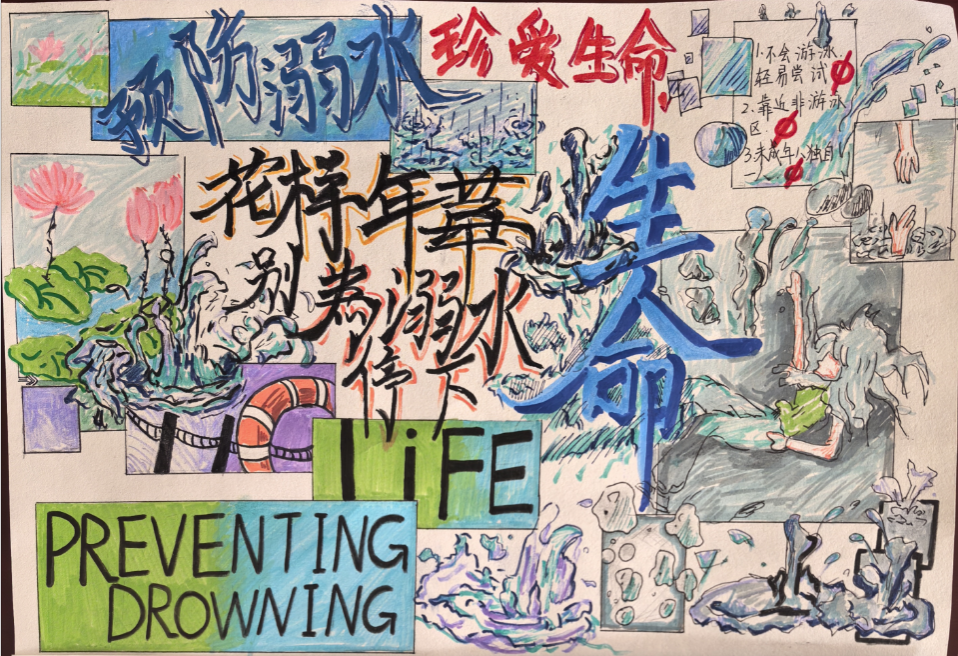 预防溺水
珍爱生命
1.不会游泳
轻易尝试
2.靠近非游泳
区.
3.未成年人独自
一人
花样年華
别为溺水
停下
生命
LiFE
PREVENTING
DROWNING